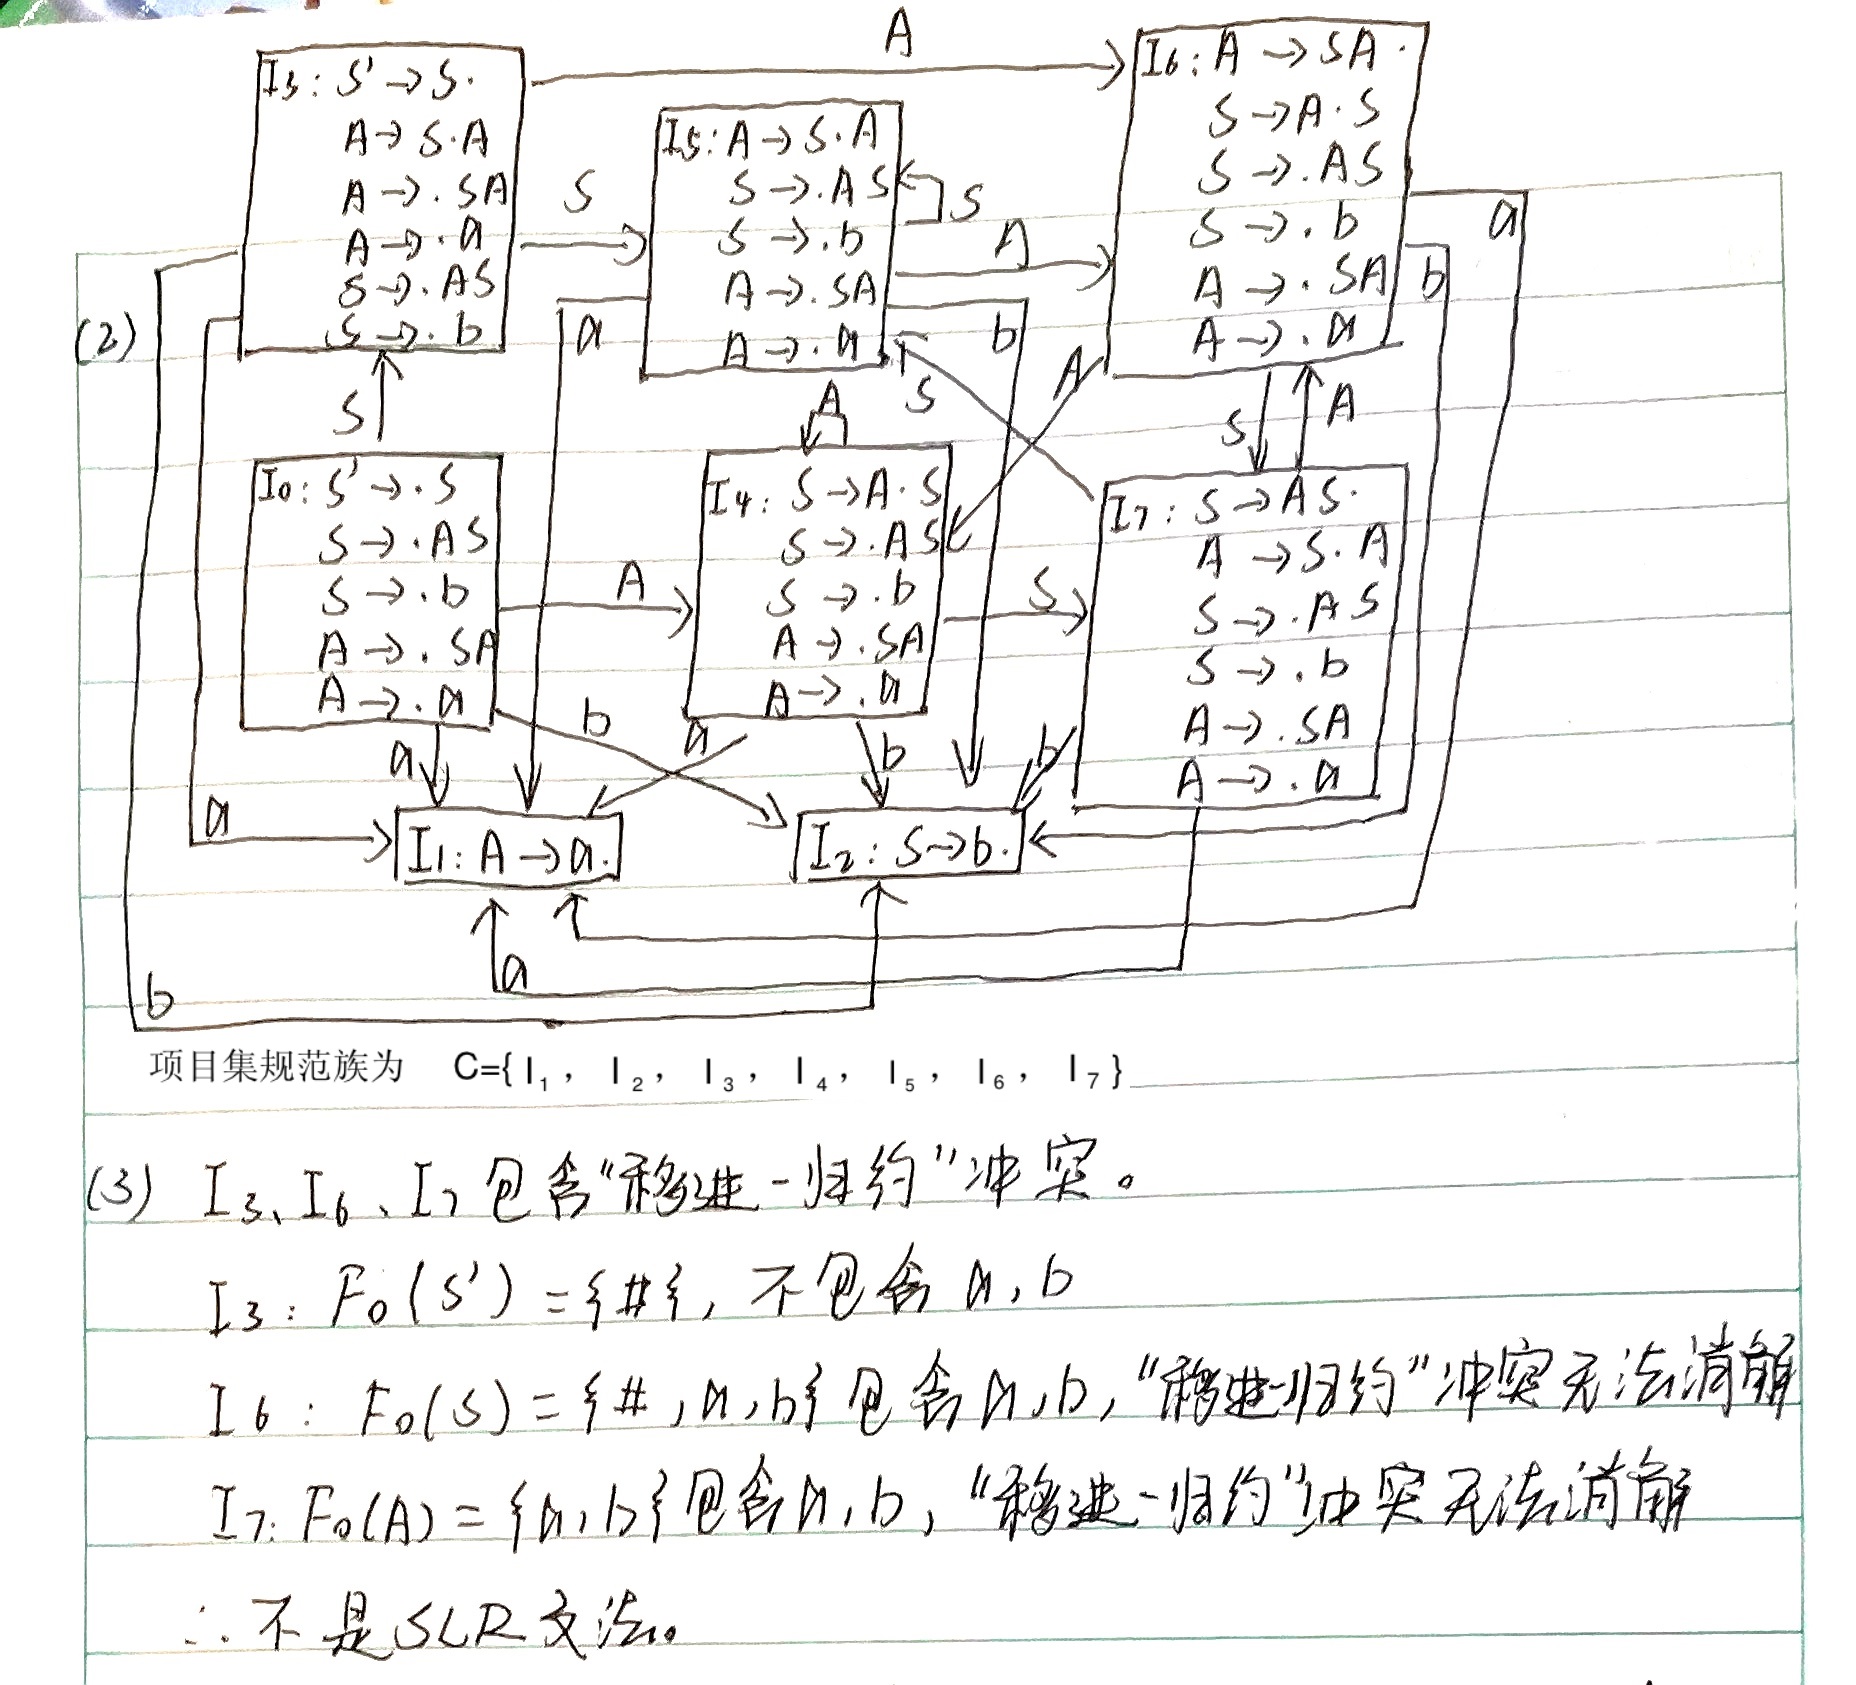 A
I3: S' → S.
A → S.A
A → .SA
A → .a
S → .AS
S → .b
S
I5: A → S.A
S → .AS
S → .b
A → .SA
A → .a
S
A
I6: A → SA.
S → A.S
S → .AS
S → .b
A → .SA
A → .a
a
b
(2)
a
b
S
A
S
A
S
A
I0: S' → .S
S → .AS
S → .b
A → .SA
A → .a
A
I4: S → A.S
S → .AS
S → .b
A → .SA
A → .a
S
I7: S → AS.
A → S.A
S → .AS
S → .b
A → .SA
A → .a
a
b
a
b
b
a
I1: A → a.
I2: S → b.
a
b
项目集规范族为 C={ I1， I2， I3， I4， I5， I6， I7 }
(3) I3、I6、I7包含“移进-归约”冲突。
I3: Fo(S') = {#}, 不包含 a, b
I6: Fo(S) = {#,a,b}包含a,b,“移进-归约”冲突无法消解
I7: Fo(A) = {a,b}包含a,b,“移进-归约”冲突无法消解
∴ 不是SLR文法。